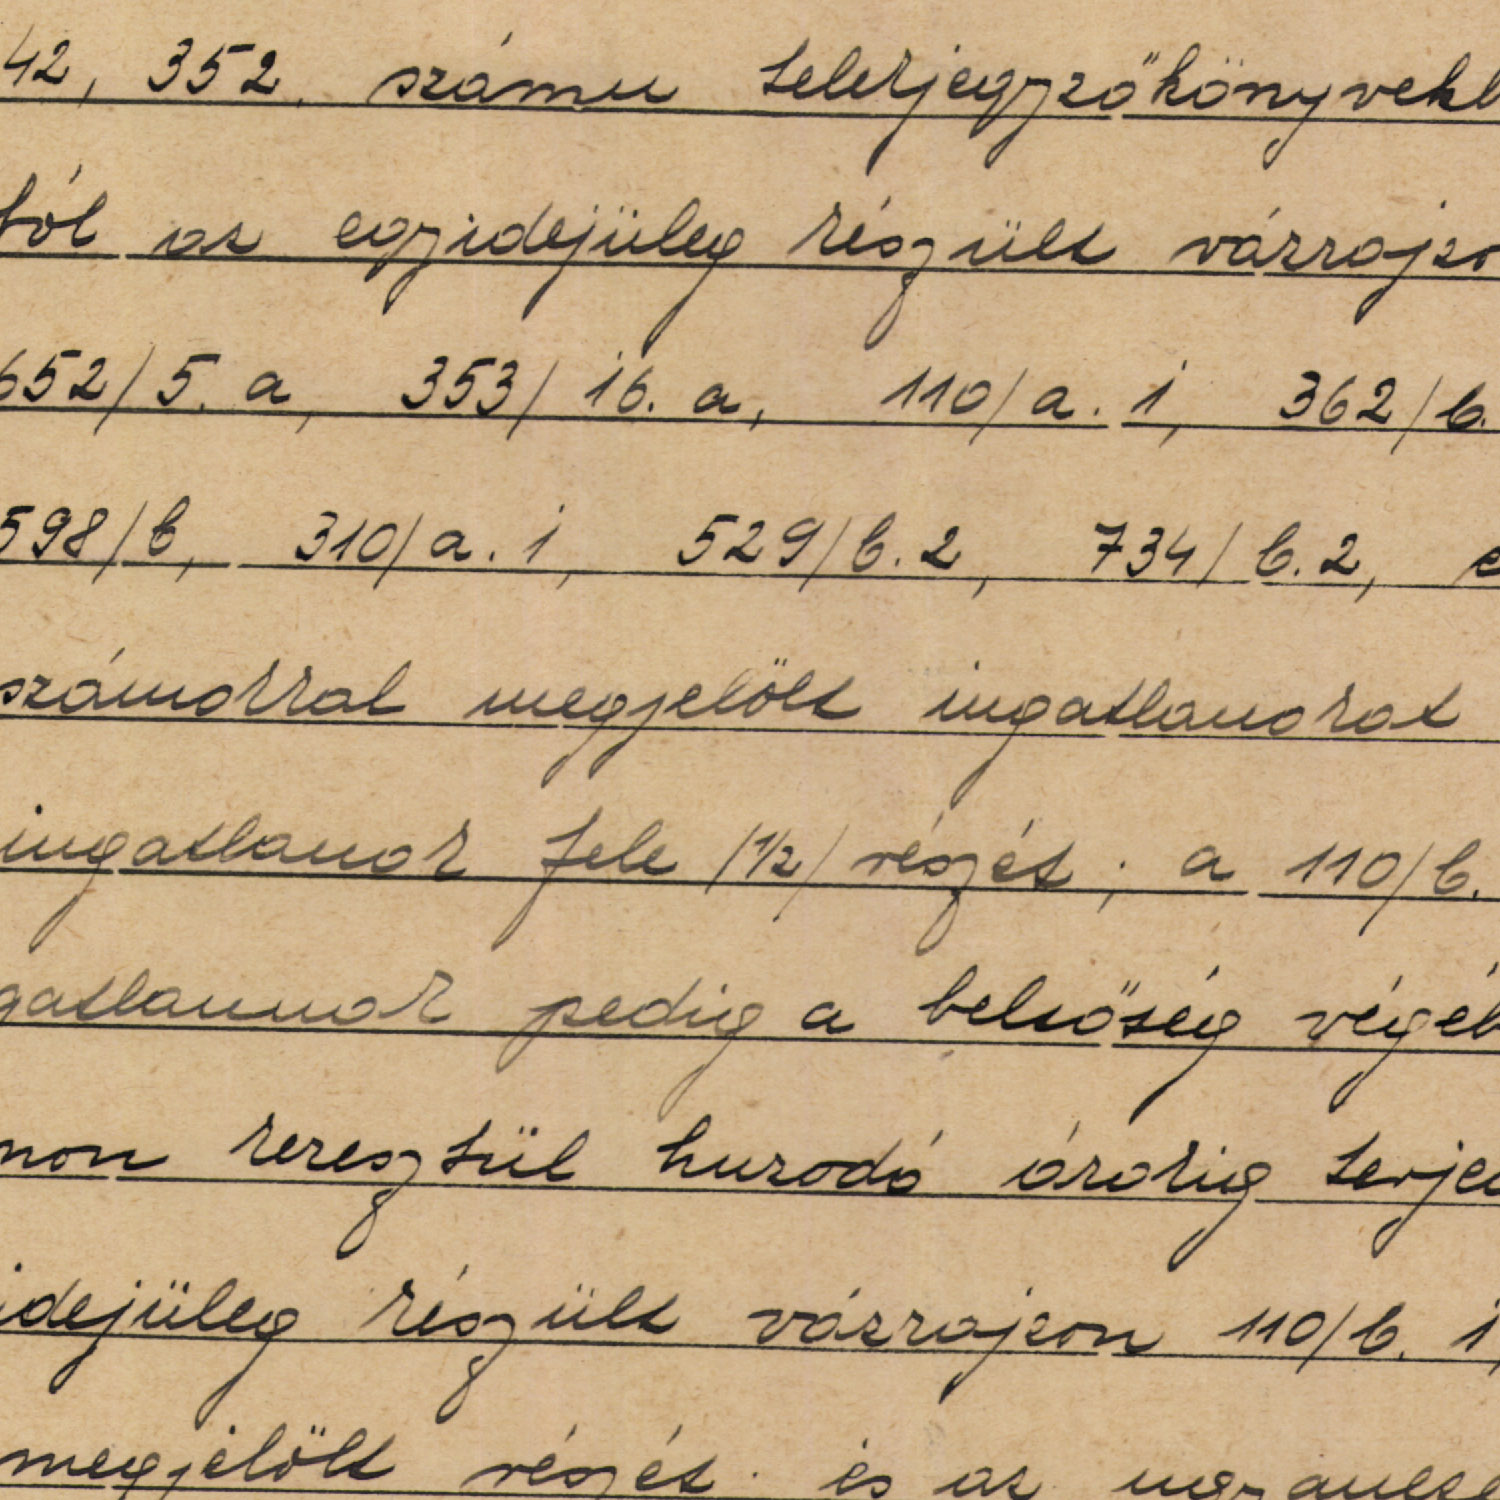 42, 352. számu telekjegyzőkönyvekb
ból az egyidejüleg készült vázrajzo
652/5. a, 353/16. a, 110/a. 1, 362/b.
598/b, 310/a. 1, 529/b. 2, 734/b. 2, e
számokkal megjelölt ingatlanokat
ingatlanok fele /1/2/ részét; a 110/b.
gatlannak pedig a belsőség végéb
non keresztül huzodó árokig terjed
idejüleg készült vázrajzon 110/b. 1,
megjelölt részét. és az